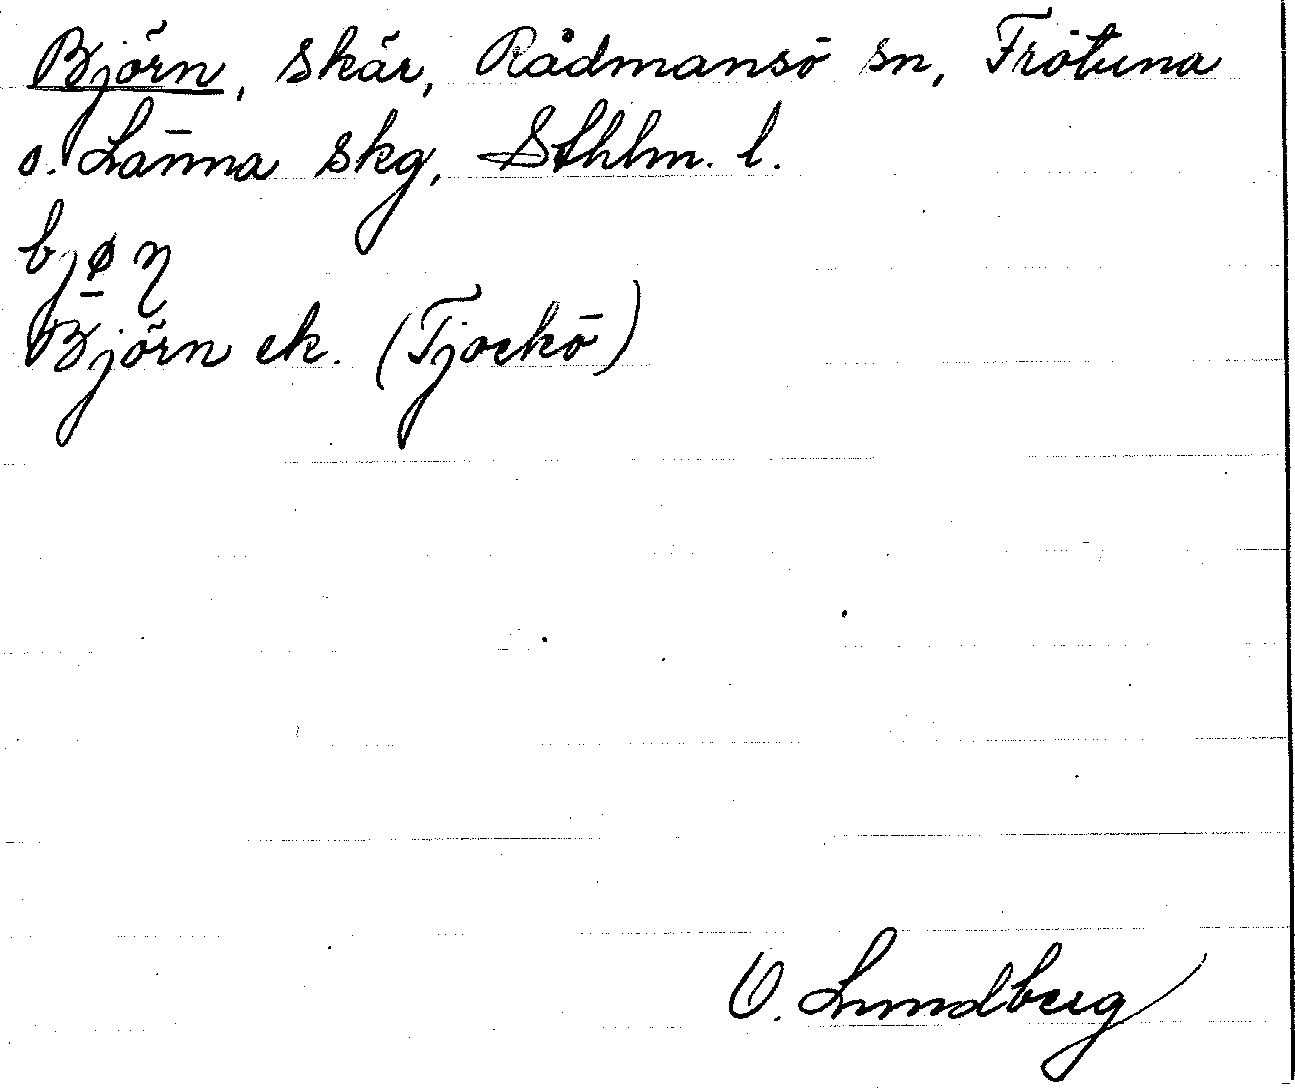 Björn, skär, Rådmansö sn, Frötuna
o. Länna skg, Sthlm. l.
bjø̱ṇ
Björn ek. (Tjockö)
O. Lundberg